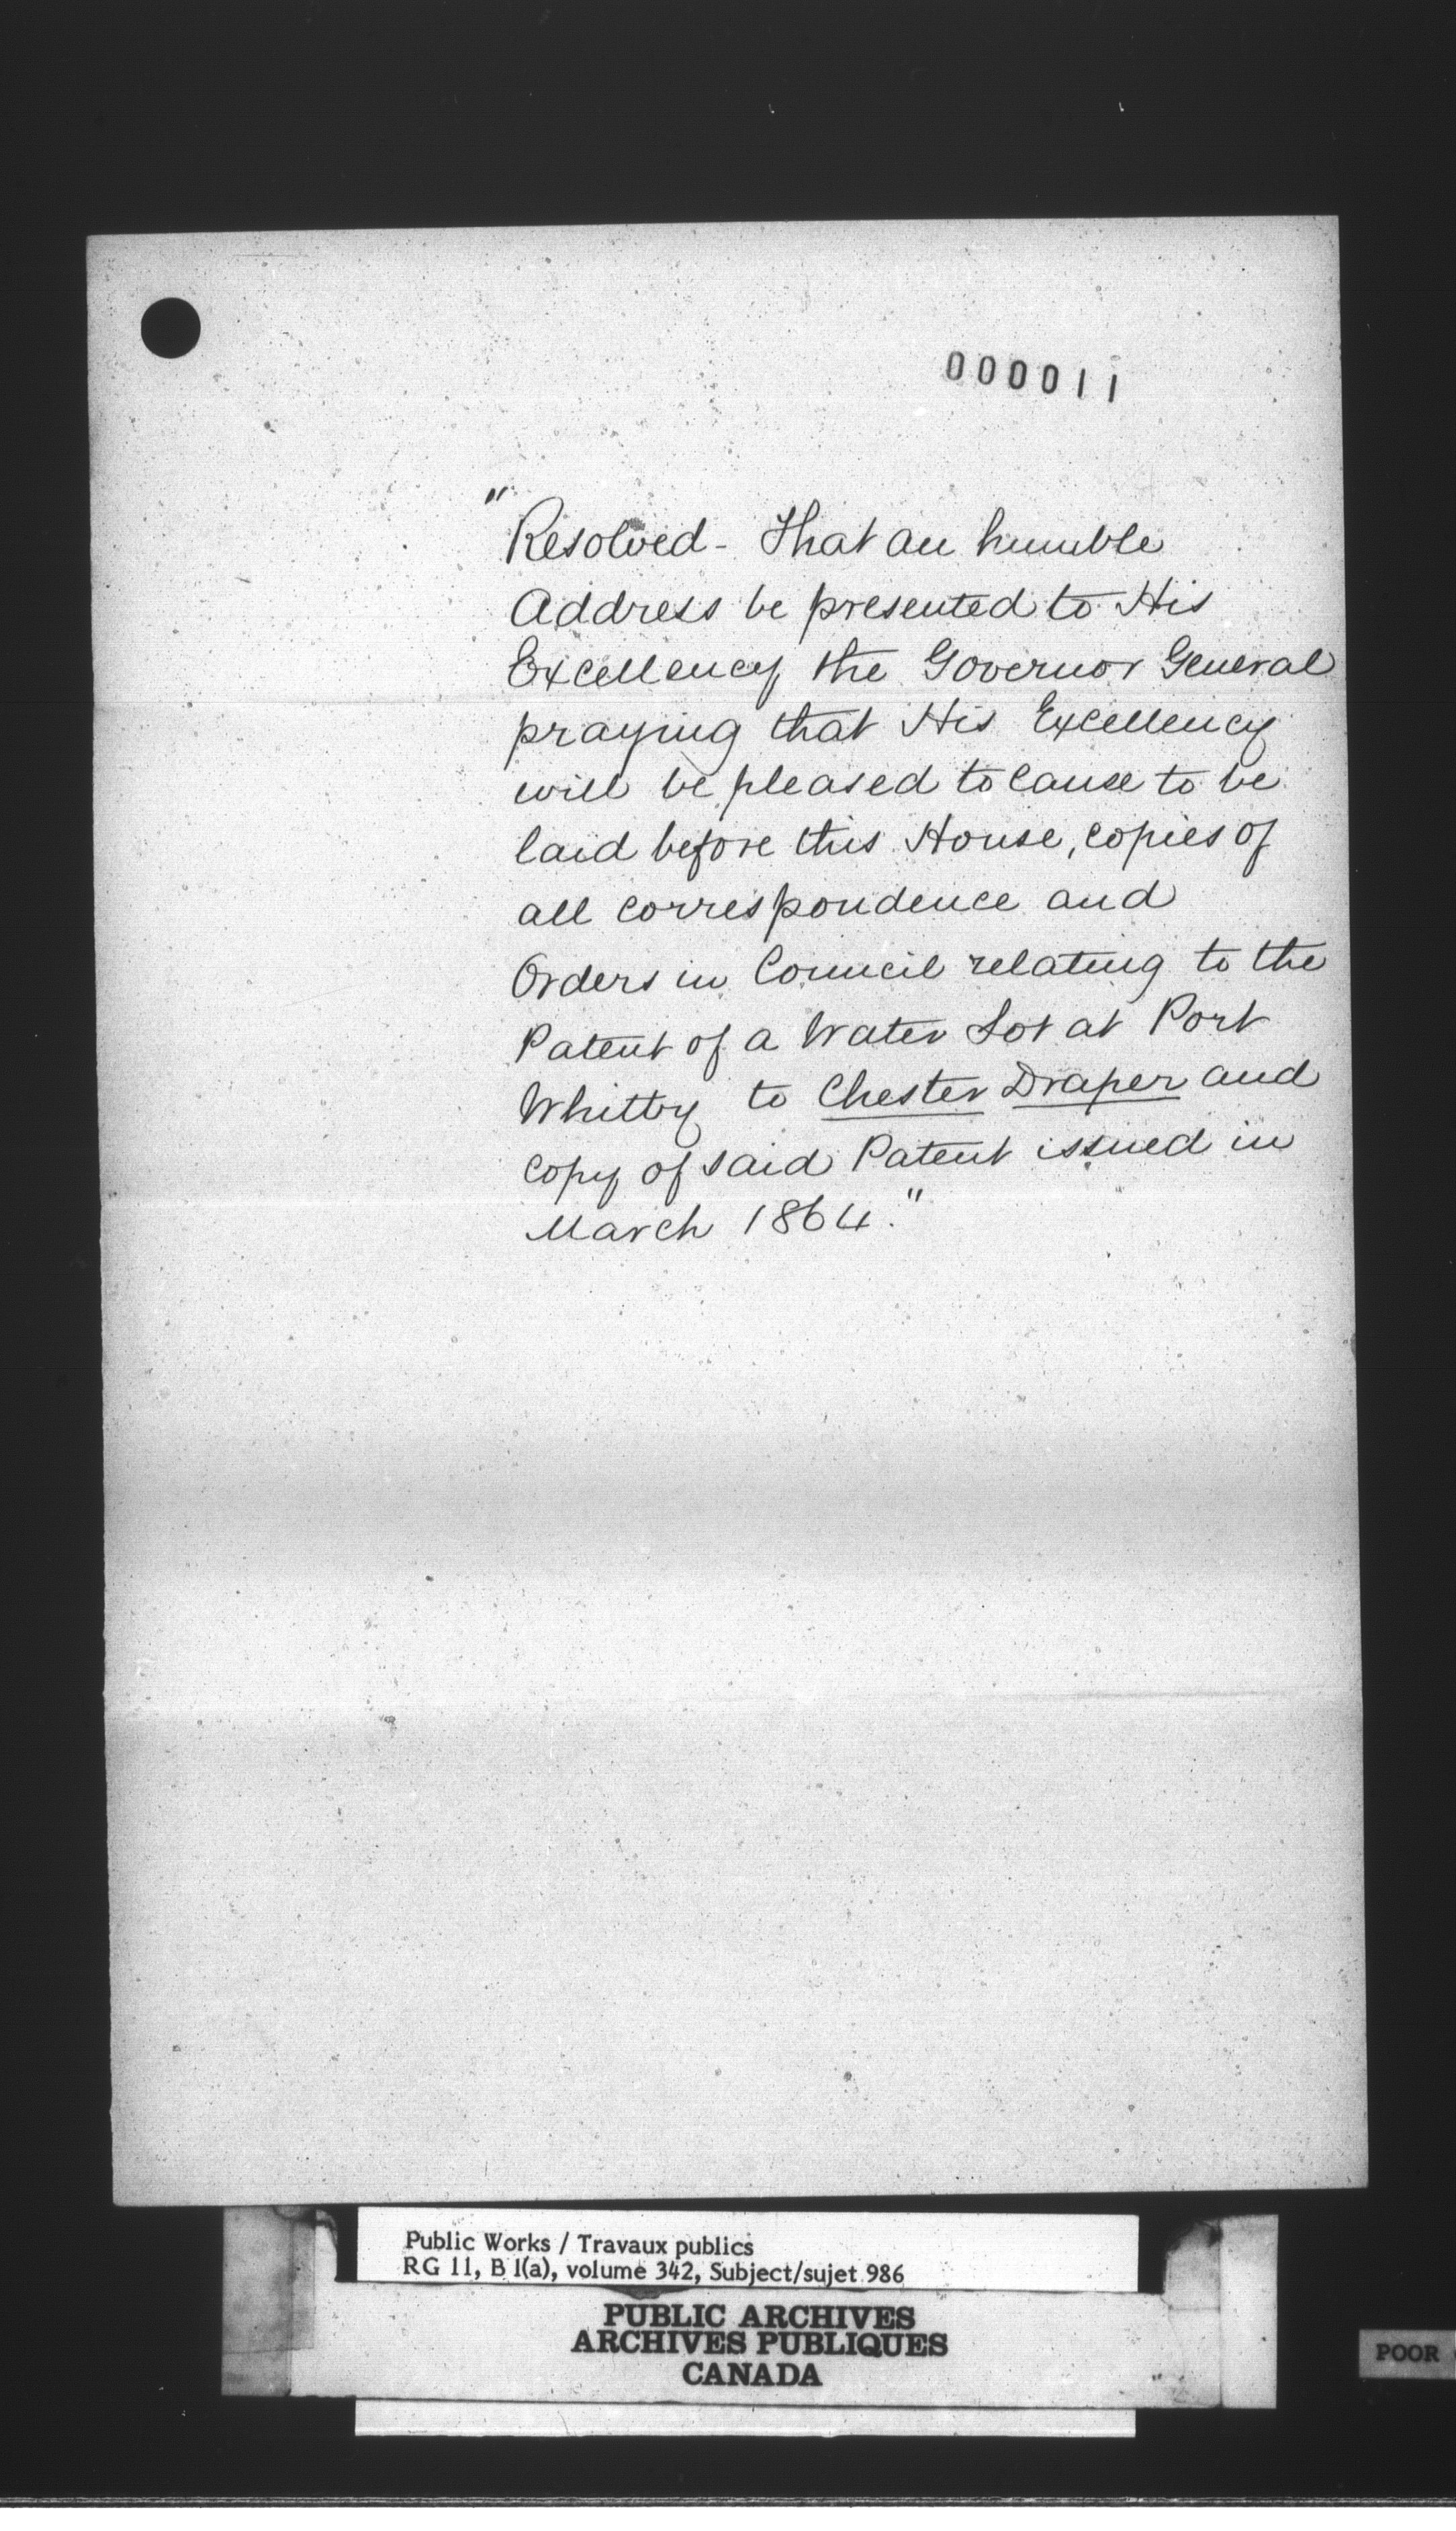 000011
"Resolved - That an humble
Address be presented to His
Excellency the Governor General
praying that His Excellency
will be pleased to cause to be
laid before this House, copies of
all correspondence and
Orders in Council relating to the
Patent of a Water Lot at Port
Whitby to Chester Draper and
copy of said Patent issued in
March 1864."
Public Works / Travaux publics
RG 11, B 1(a), volume 342, Subject/sujet 986
PUBLIC ARCHIVES
ARCHIVES PUBLIQUES
CANADA
POOR